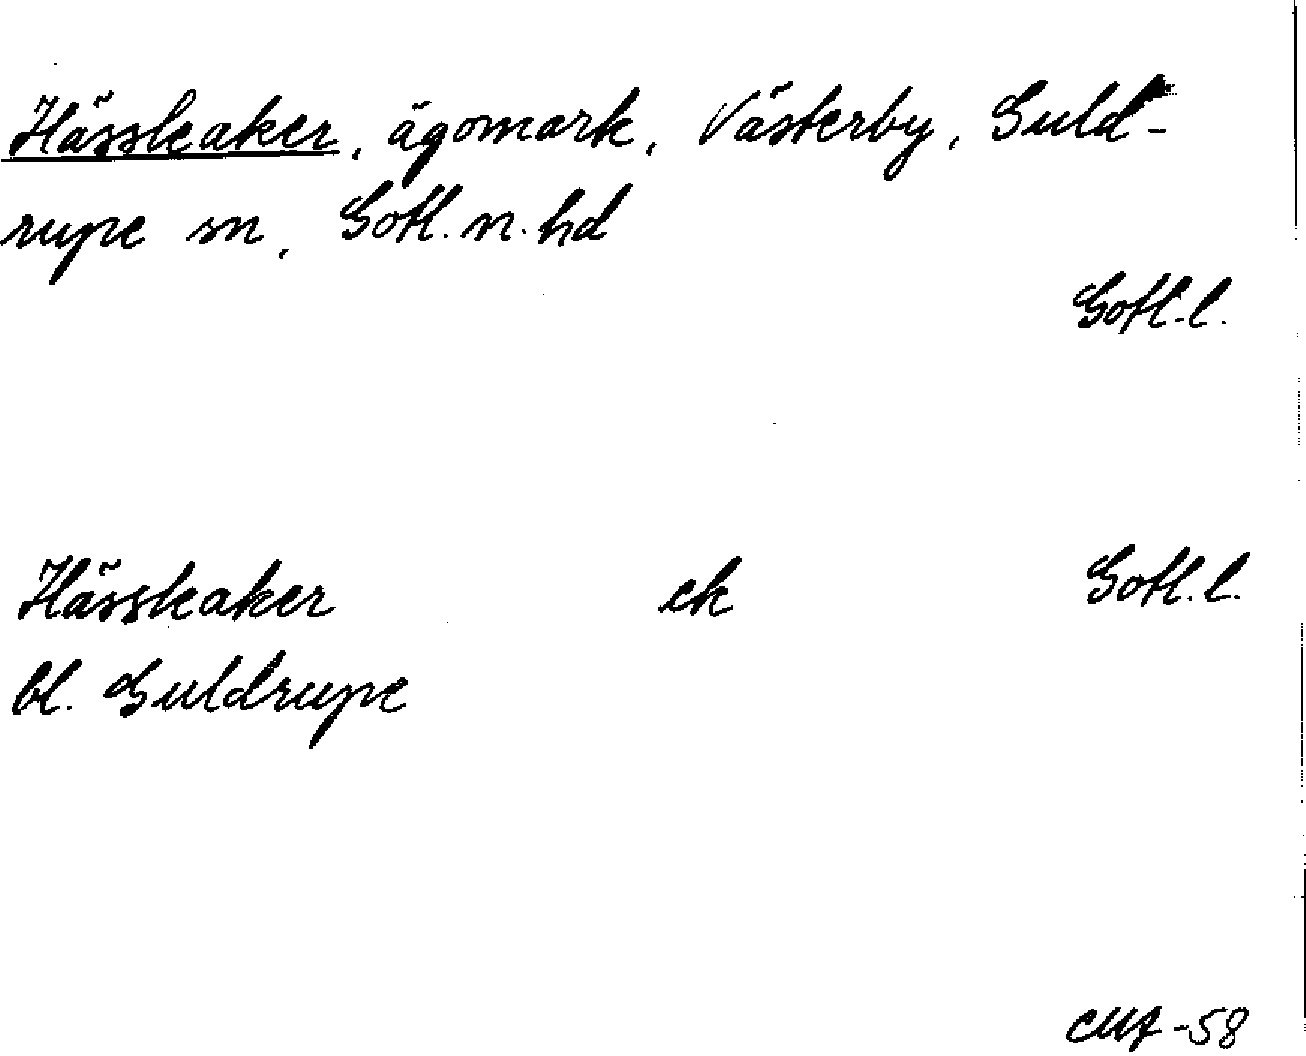 Hässleaker, ägomark, Västerby, Guld-
rupe sn, Gotl. n. hd
Gotl. l.
Hässleaker ek Gotl. l.
bl. Guldrupe
-58